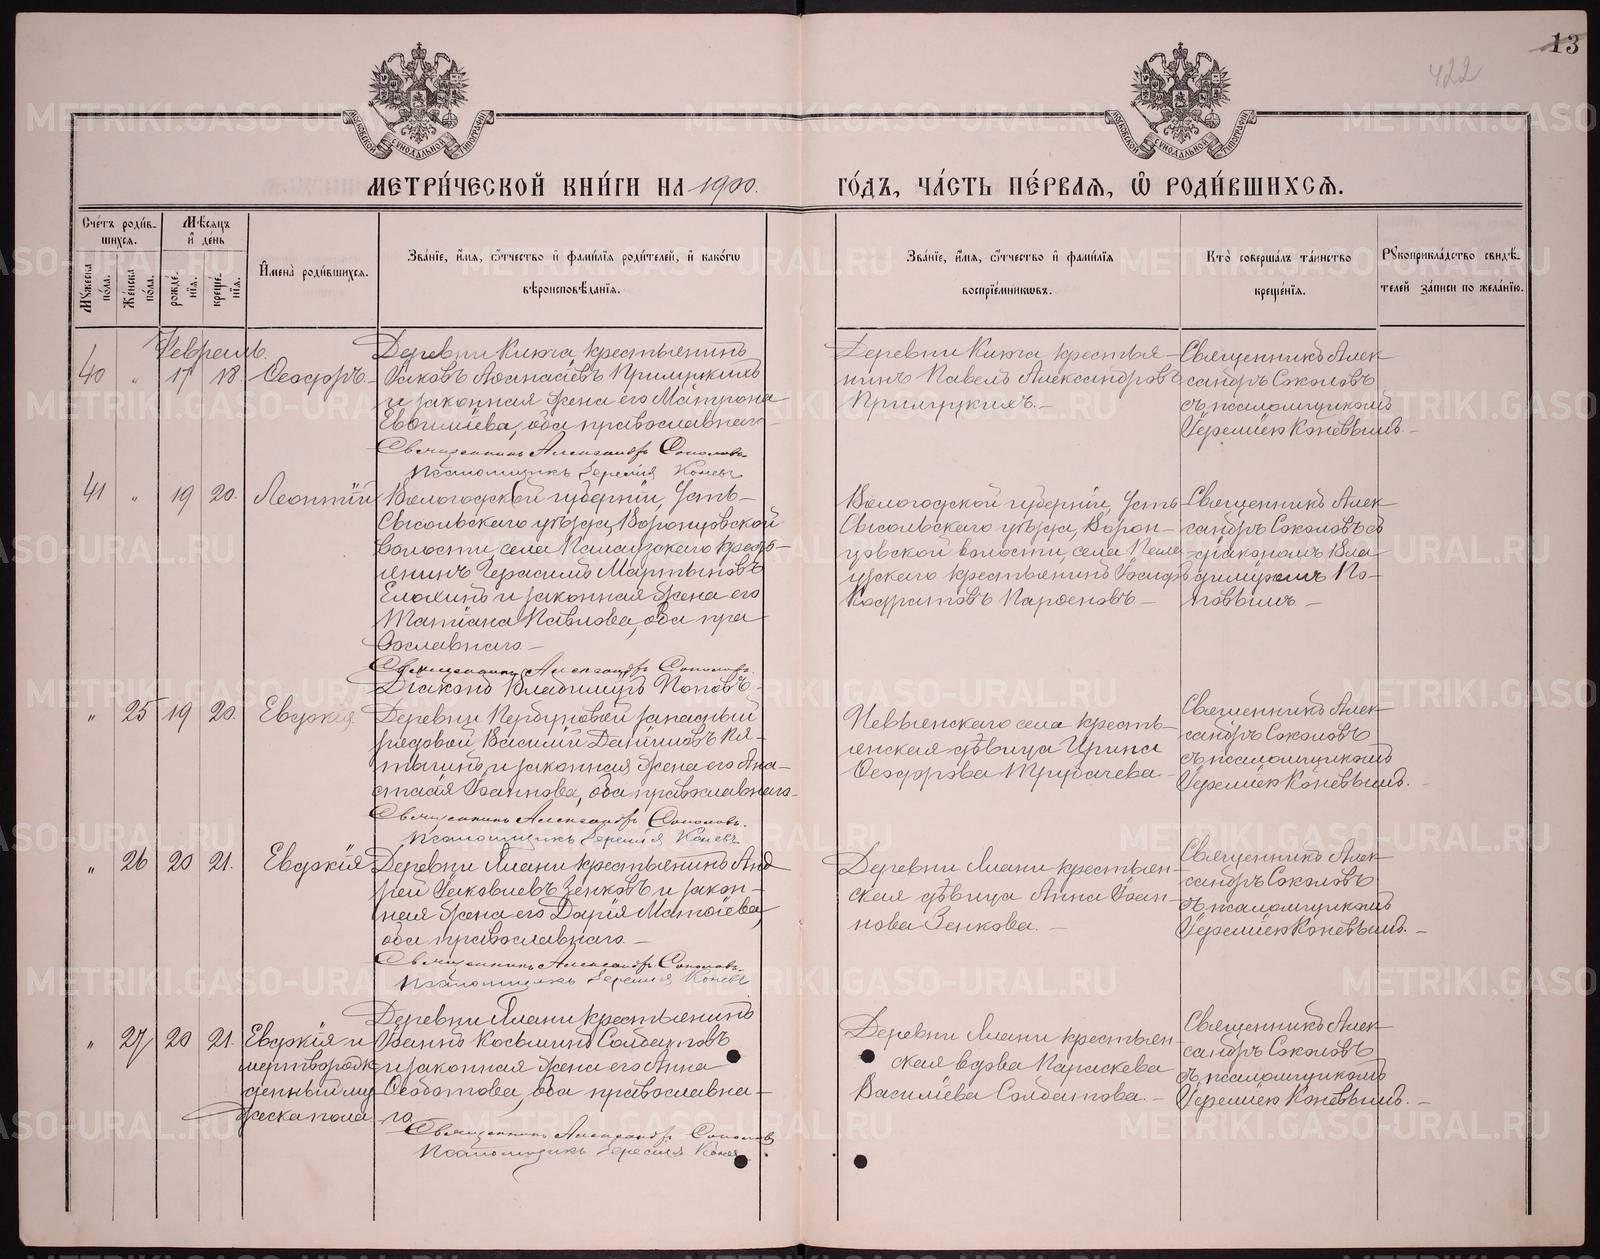 13
422
МЕТРИ́ЧЕСКОЙ КНИ́ГИ НА 1900.
ГО́ДЪ, ЧА́СТЬ ПЕ́РВАЯ, Ѽ РОДИ́ВШИХСЯ.
Сче́тъ роди́в-
шихся.
Мꙋ́жеска по́ла.
Же́нска по́ла.
Мѣ́сяцъ
и҆ де́нь
рожде́-
нїя.
креще́-
нїя.
И҆мена̀ роди́вшихся.
Зва́нїе, и҆́мя, ѻ҆́тчество и҆ фами́лїя роди́телей, и҆ како́гѡ
вѣроисповѣ́данїя.
Зва́нїе, и҆́мя, ѻ҆́тчество и҆ фами́лїя
воспрїе́мникѡвъ.
Кто̀ соверша́лъ та́инство
креще́нїя.
Рꙋкоприкла́дство свидѣ́-
телей за́писи по жела́нїю.
Февраль.
40 „ 17 18. Ѳеодоръ
Деревни Киюча, крестьянинъ
Іаковъ Аѳанасіевъ Прилуцкихъ
и законная жена его Матрона
Евѳиміева, оба православнаго
Священникъ Александръ Соколовъ
Псаломщикъ Іеремія Коневъ
Деревни Киюча крестья-
нинъ Павелъ Александровъ
Прилуцкихъ. —
Священникъ Алек-
сандръ Соколовъ
съ псаломщикомъ
Іереміею Коневымъ. —
41 „ 19 20. Леонтій
Вологодской губерніи, Усть-
Сысольскаго уѣзда, Воронцовской
волости, села Палаузскаго кресть-
янинъ Герасимъ Мартыновъ
Елохинъ и законная жена его
Татіана Павлова, оба пра
вославнаго —
Священникъ Александръ Соколовъ
Діаконъ Владиміръ Поповъ.
Вологодской губерніи, Усть
Сысольскаго уѣзда, Ворон-
цовской волости, села Пала
узскаго крестьянинъ Іосифъ
Кодратовъ Парѳеновъ —
Священникъ Алек-
сандръ Соколовъ съ
діакономъ Вла-
диміромъ По-
повымъ —
„ 25 19 20. Евдокія
Деревни запасный
рядовой Василій Даниловъ Пя-
тыгинъ и законная жена его Ана-
стасія Іоаннова, оба православнаго —
Священникъ Александръ Соколовъ.
Псаломщикъ Іеремія Коневъ
Невьянскаго села кресть-
янская дѣвица Ирина
Ѳеодорова Трубачева
Священникъ Алек-
сандръ Соколовъ
съ псаломщикомъ
Іереміею Коневымъ. —
„ 26 20 21. Евдокія
Деревни Ялани крестьянинъ Анд
рей Іаковлевъ Зенковъ и закон-
ная жена его Дарія Матѳіева,
оба православнаго —
Священникъ Александръ Соколовъ.
Псаломщикъ Іеремія Коневъ
Деревни Ялани крестьян-
ская дѣвица Анна Іоан-
нова Зенкова. —
Священникъ Алек-
сандръ Соколовъ
съ псаломщикомъ
Іереміею Коневымъ. —
„ 27 20 21. Евдокія и
мертворож
денный му
жеска пола
Деревни Ялани крестьянинъ
Іоаннъ Косьминъ Солдатовъ
и законная жена его Анна
Ѳеодотова, оба православна-
го.
Священникъ Александръ Соколовъ
Псаломщикъ Іеремія Коневъ
Деревни Ялани крестьян-
ская вдова Параскева
Василіева Солдатова. —
Священникъ Алек-
сандръ Соколовъ
съ псаломщикомъ
Іереміею Коневымъ. —
METRIKI.GASO-URAL.RU